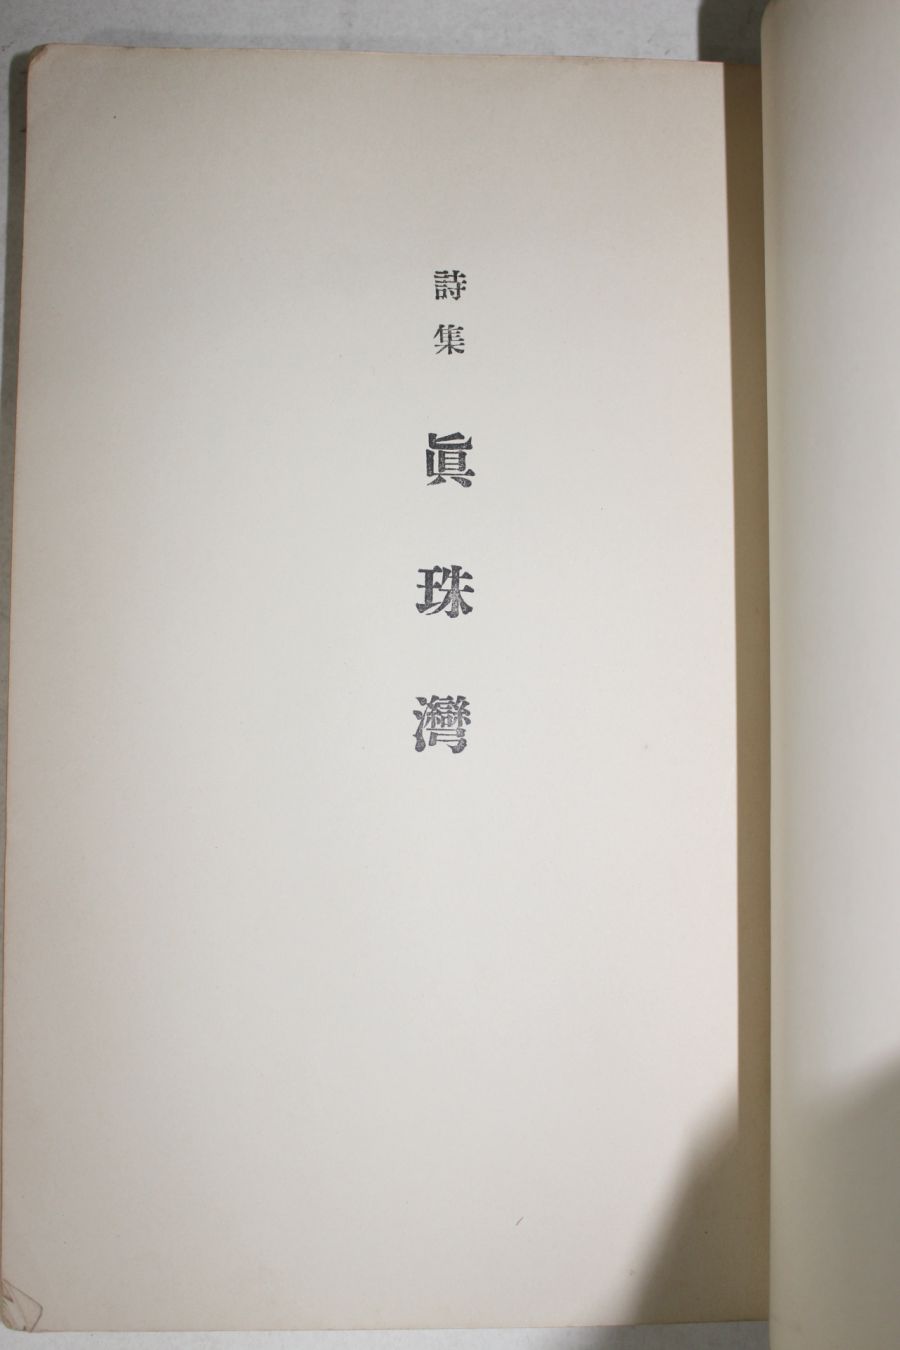 詩集 眞珠灣